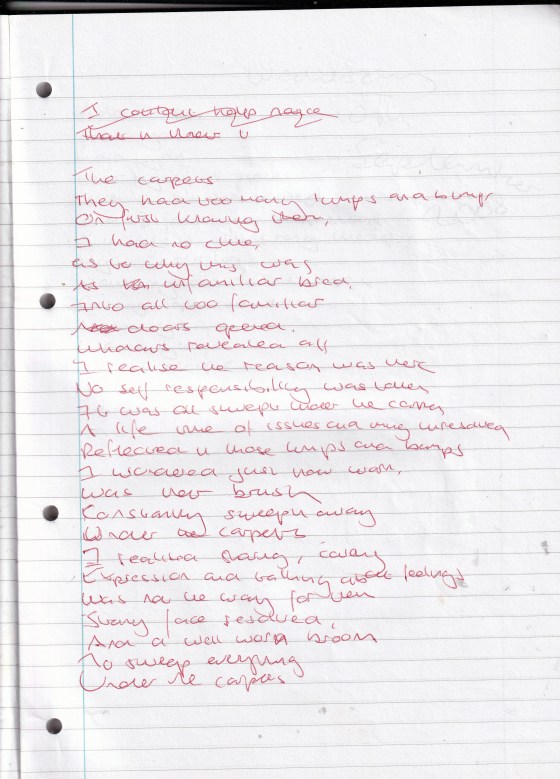 I
The carpets
They had too many lumps and bumps
On first knowing them,
I had no clue,
as to why this was
As unfamiliar bred.
Into all too familiar
doors opened.
windows revealed all
I realise the reason was here
No self responsibility was taken
It was all swept under the carpet
A life time of issues and unresolved
Reflected in those lumps and bumps
I wondered just how worn,
was their brush
Constantly swept away
Under carpets
I realised sharing, caring
Expression and talking about feelings
was not the way for them
Stony face resolved,
And a well worn broom
To sweep everything
Under the carpets